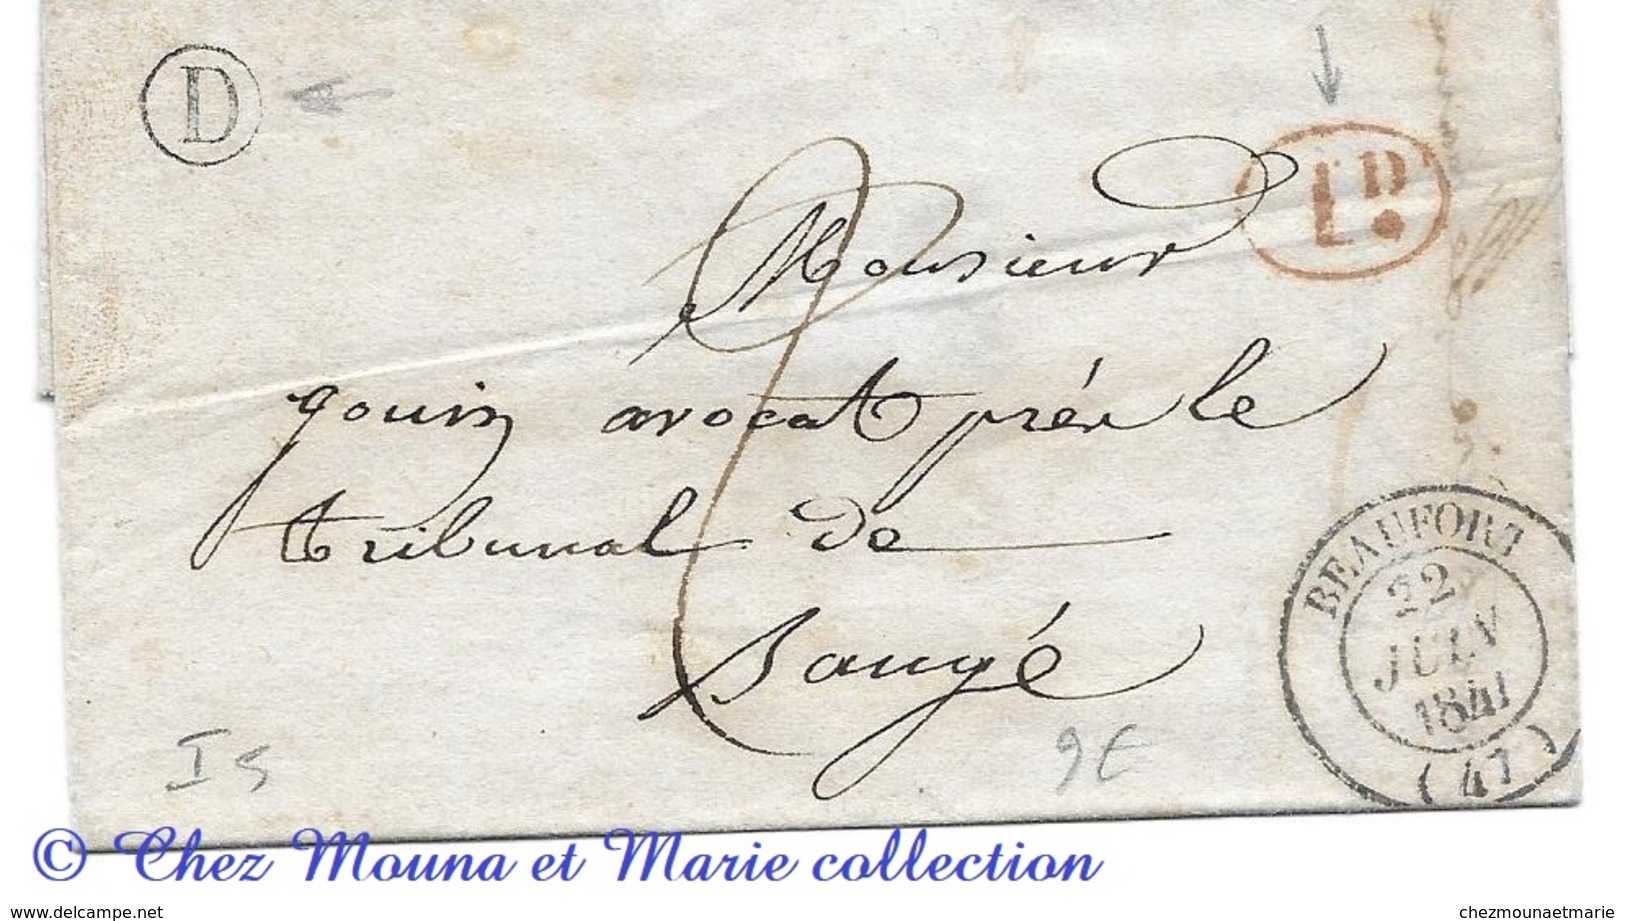 D
1D.
Monsieur
gouin avocat près le
tribunal de
Baugé
BEAUFORT
22
JUIL
1841
(47)
9€
© Chez Mouna et Marie collection
www.delcampe.net
chezmounaetmarie